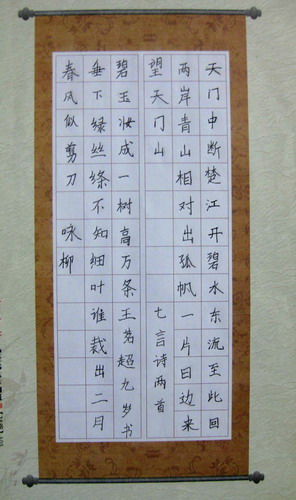 天门中断楚江开碧水东流至此回
两岸青山相对出孤帆一片日边来
望天门山 七言诗两首
碧玉妆成一树高万条王茗超九岁书
垂下绿丝绦不知细叶谁裁出二月
春风似剪刀 咏柳